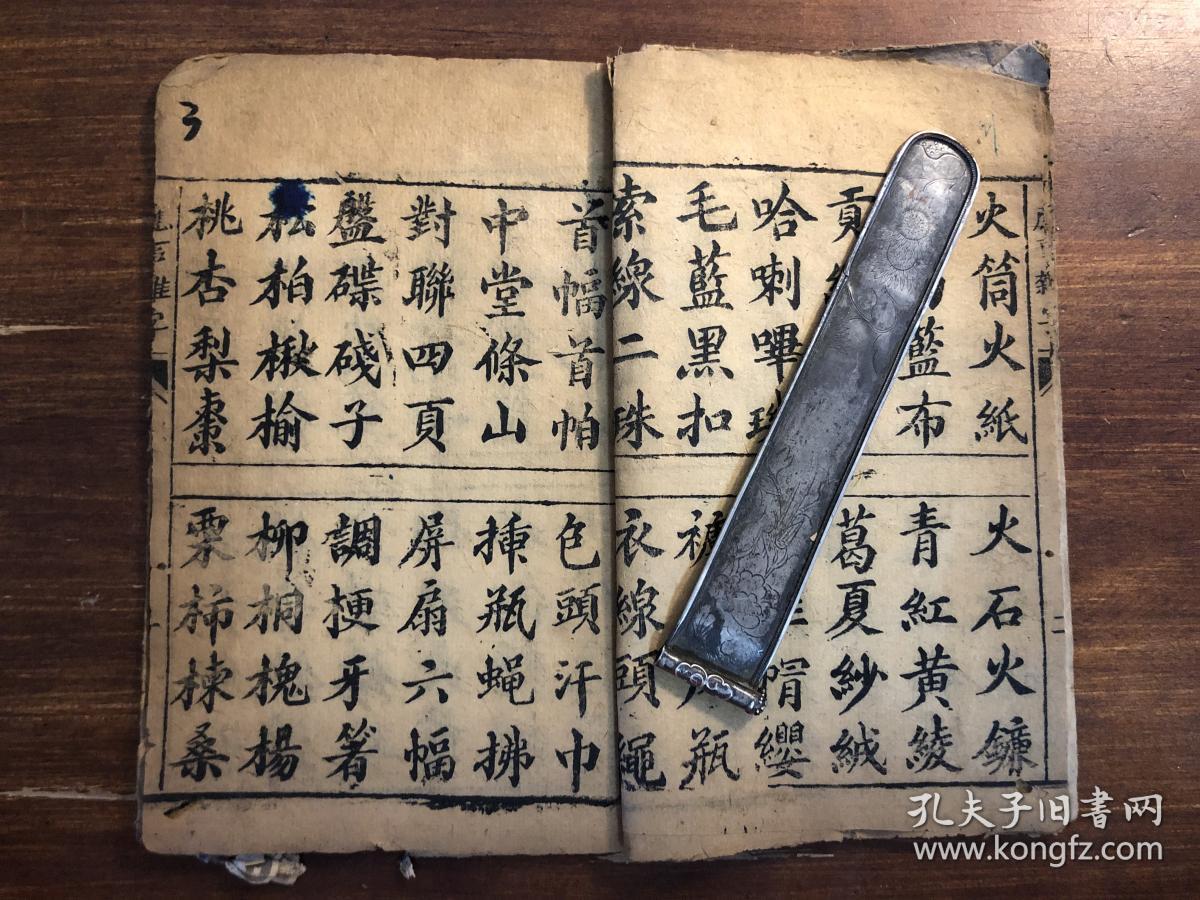 火筒火紙
火石火鐮
藍布
青紅黃綾
貢
葛夏紗絨
哈喇嗶
帽纓
毛藍黑扣
瓶
索線二珠
衣線頭繩
首幅首帕
色頭汗巾
中堂條山
揷瓶蝇拂
對聯四頁
屏扇六幅
盤碟碊子
調梗牙箸
柗柏楸榆
柳桐槐楊
桃杏梨棗
栗柿楝桑
3
孔夫子旧書网
www.kongfz.com